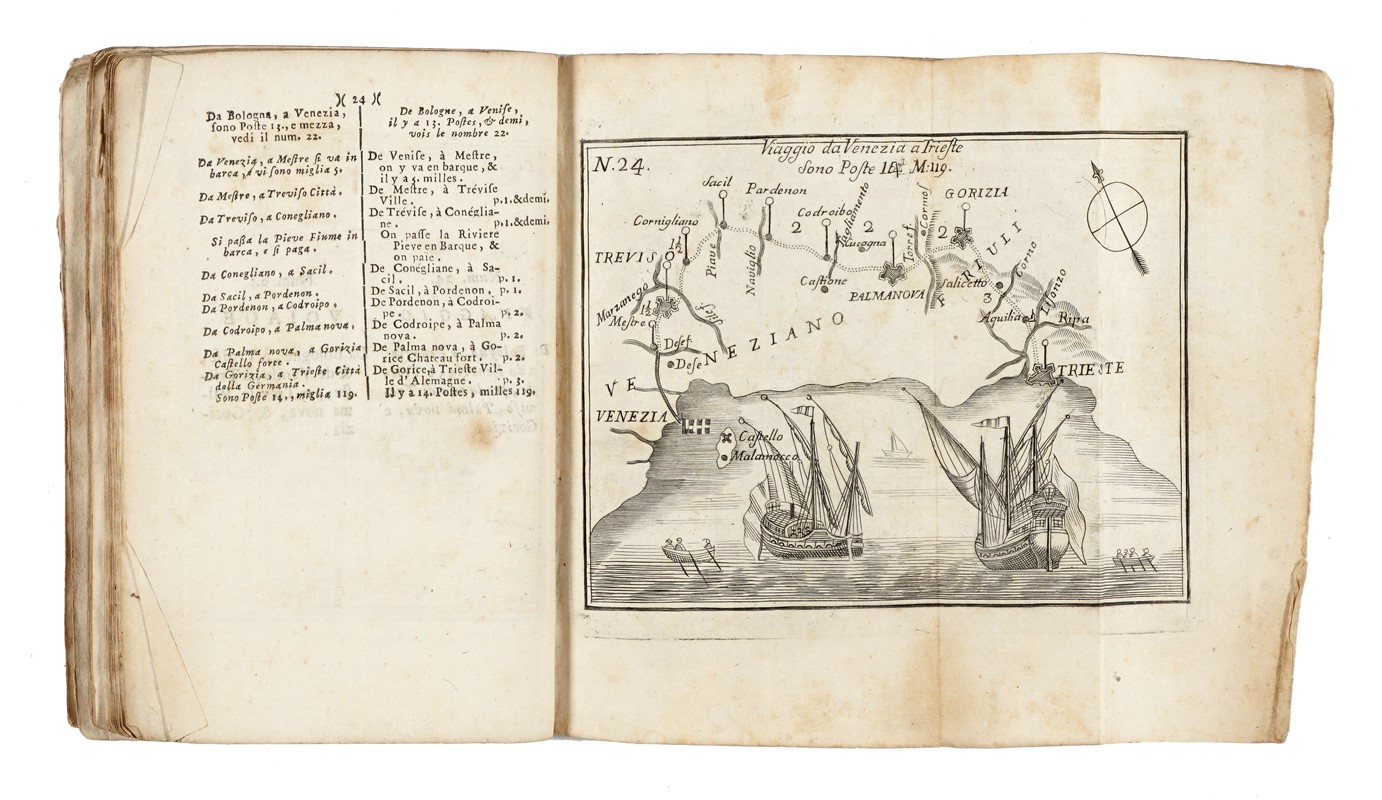 )( 24 )(
Da Bologna, a Venezia,
sono Poste 13., e mezza,
vedi il num. 22.
Da Venezia, a Mestre si va in
barca, e vi sono miglia 5.
Da Mestre, a Treviso Città.
Da Treviso, a Conegliano.
Si passa la Pieve Fiume in
barca, e si paga.
Da Conegliano, a Sacil.
Da Sacil, a Pordenon.
Da Pordenon, a Codroipo.
Da Codroipo, a Palma nova.
Da Palma nova, a Gorizia
Castello forte.
Da Gorizia, a Trieste Città
della Germania.
Sono Poste 14., miglia 119.
De Bologne, a Venise,
il y a 13. Postes, & demi,
vois le nombre 22.
De Venise, à Mestre,
on y va en barque, &
il y a 5. milles.
De Mestre, à Trévise
Ville. p.1.&demi.
De Trévise, à Conéglia-
ne. p.1.&demi.
On passe la Riviere
Pieve en Barque, &
on paie.
De Conégliane, à Sa-
cil. p. 1.
De Sacil, à Pordenon. p. 1.
De Pordenon, à Codroi-
pe. p. 2.
De Codroipe, à Palma
nova. p. 2.
De Palma nova, à Go-
rice Chateau fort. p. 2.
De Gorice, à Trieste Vil-
le d'Alemagne. p. 3.
Il y a 14. Postes, milles 119.
Viaggio da Venezia a Trieste
N. 24.
Sono Poste 14 M: 119.
Sacil
Pardenon
Codroibo
Tagliamento
Cormos
GORIZIA
Cornigliano
1½
2
2
2
Lucogna
Torre f.
TREVISO
Piave
Naviglio
Castione
PALMANOVA
FRIULI
Salicetto
3
Corno
Lisonzo
Marzanego
1½
Mestre
Sile f.
Aquilia
Ripa
Dese f.
Dese
VENEZIANO
TRIESTE
VENEZIA
Castello
Malamocco